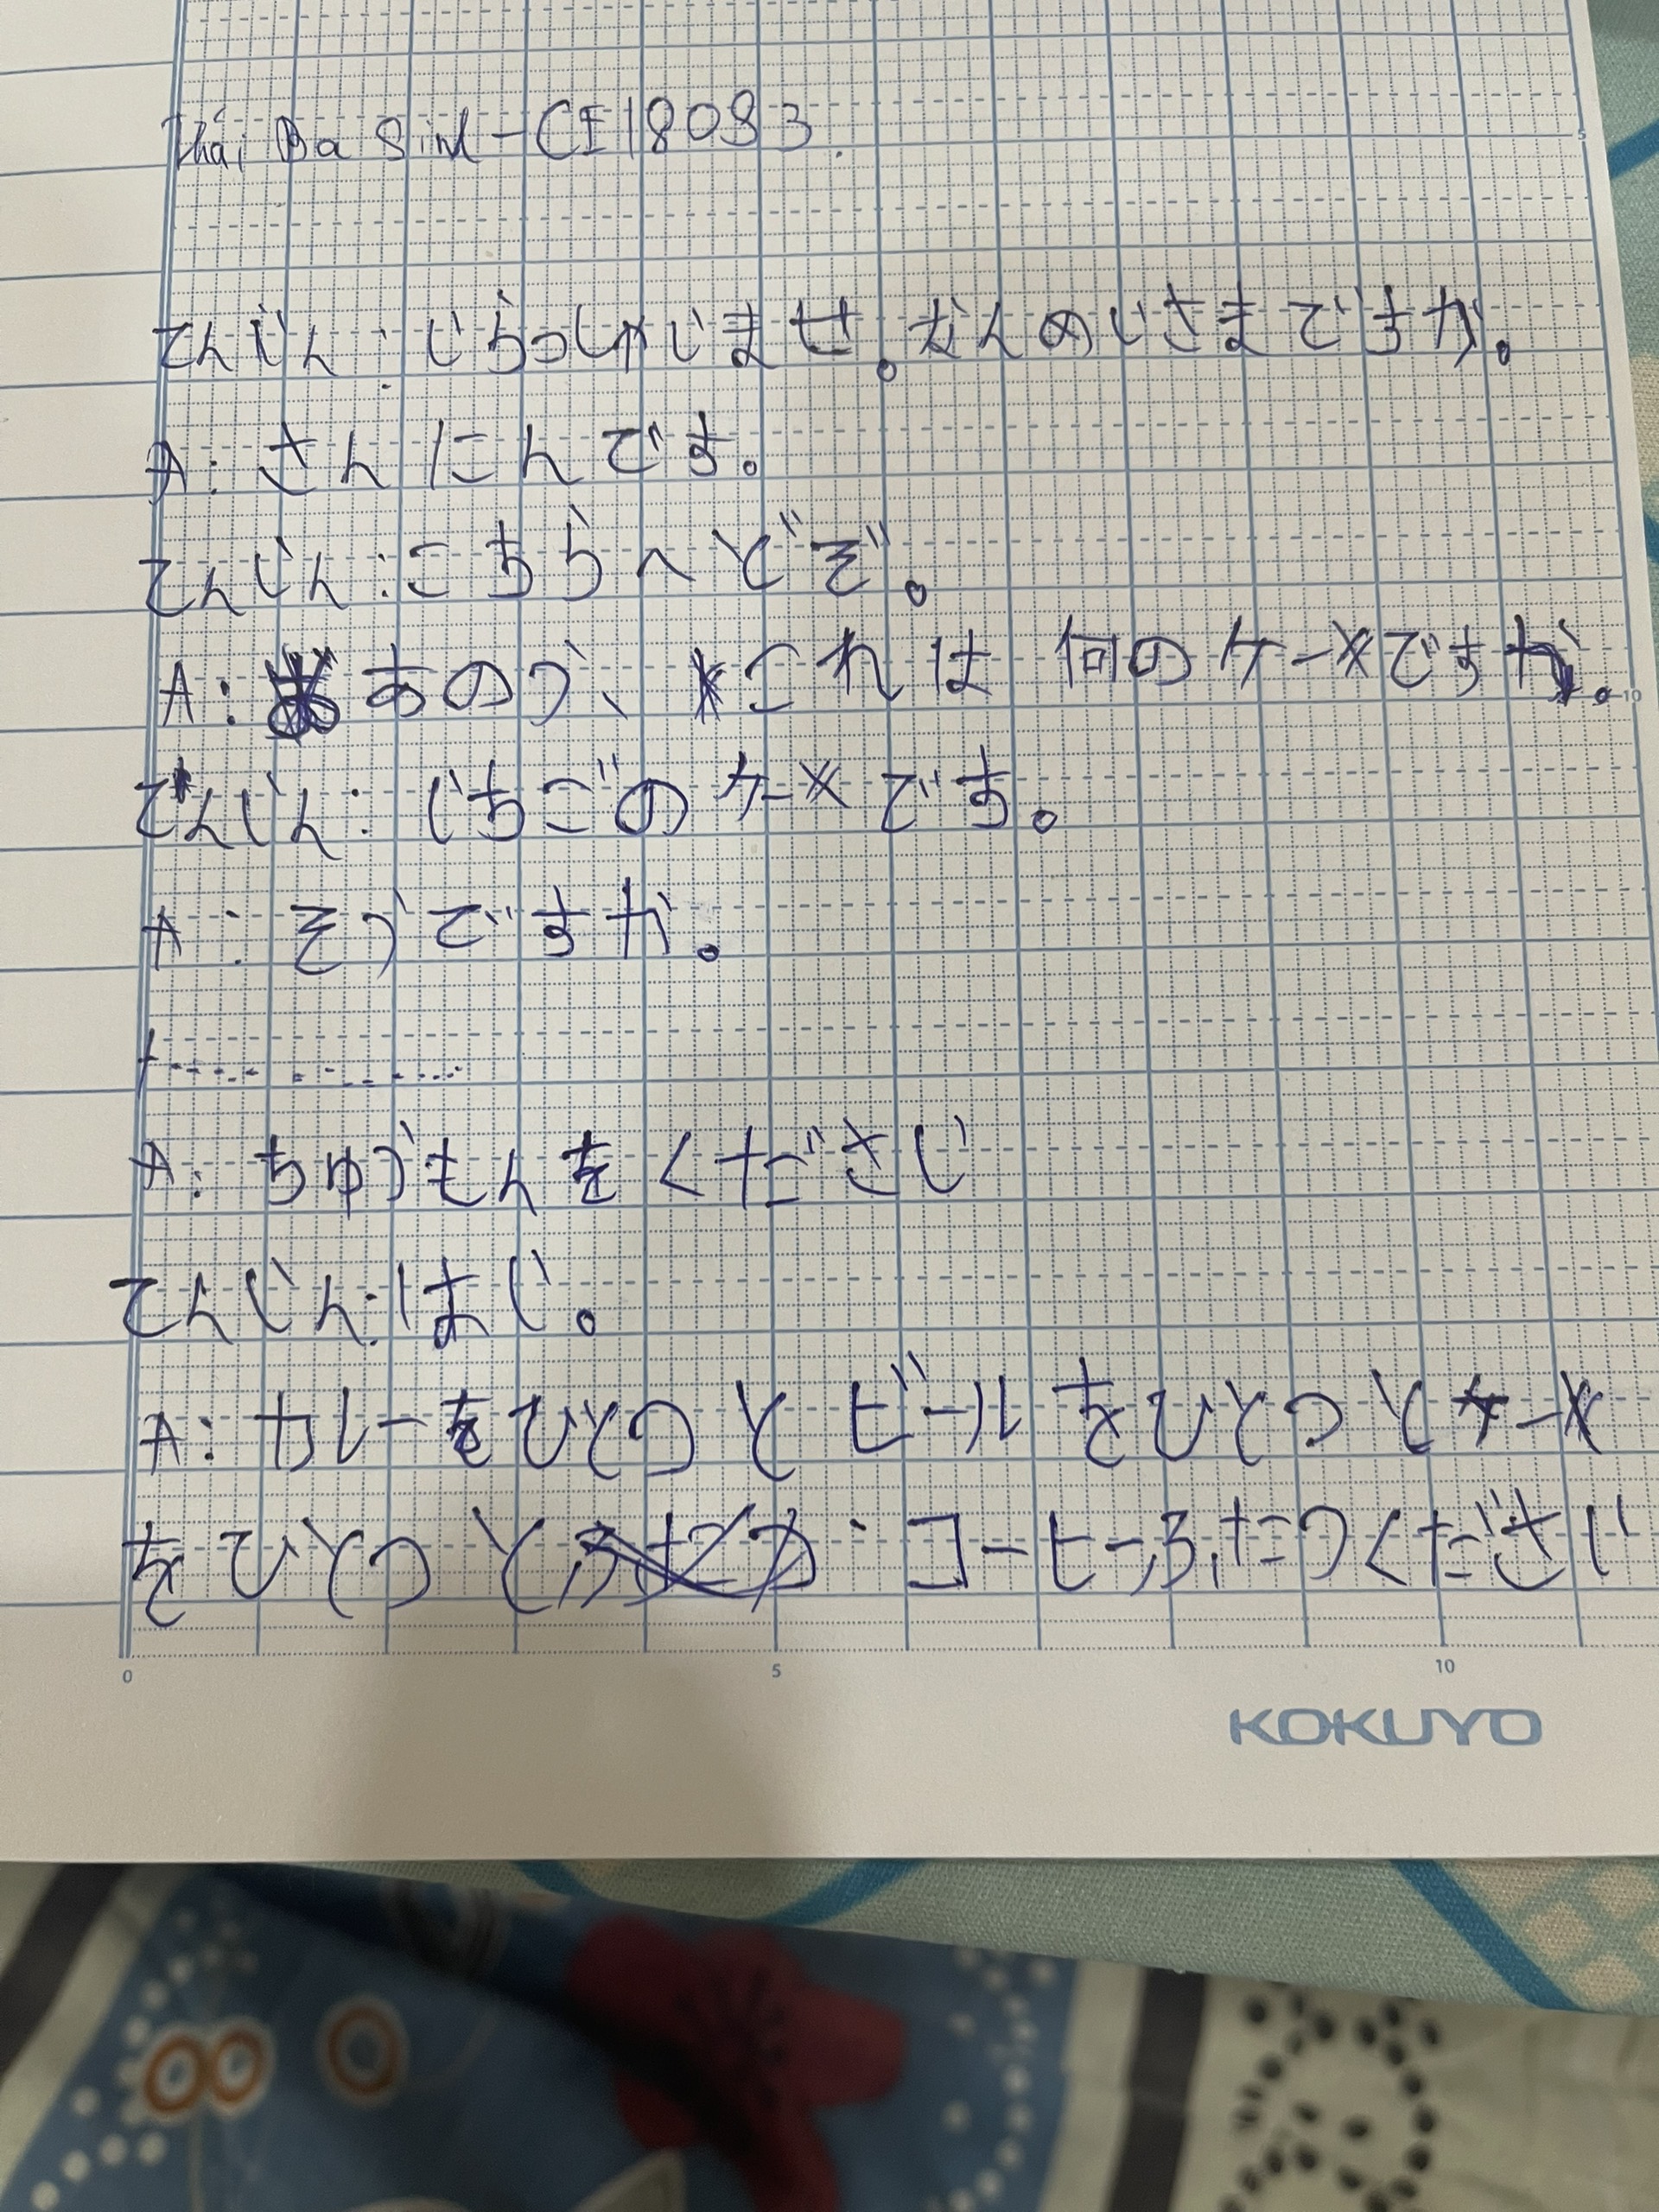 Thái Ba Sinh - CE18083.
てんいん：いらっしゃいませ。なんめいさまですか。
A: さんにんです。
てんいん：こちらへどぞ。
A: あのう、これは 何のケーキですか。
てんいん：いちごのケーキです。
A: そうですか。
A: ちゅうもんをください
てんいん：はい。
A: カレーをひとつと ビールをひとつとケーキ
をひとつと コーヒーふたつください
5
10
0
5
10
KOKUYO